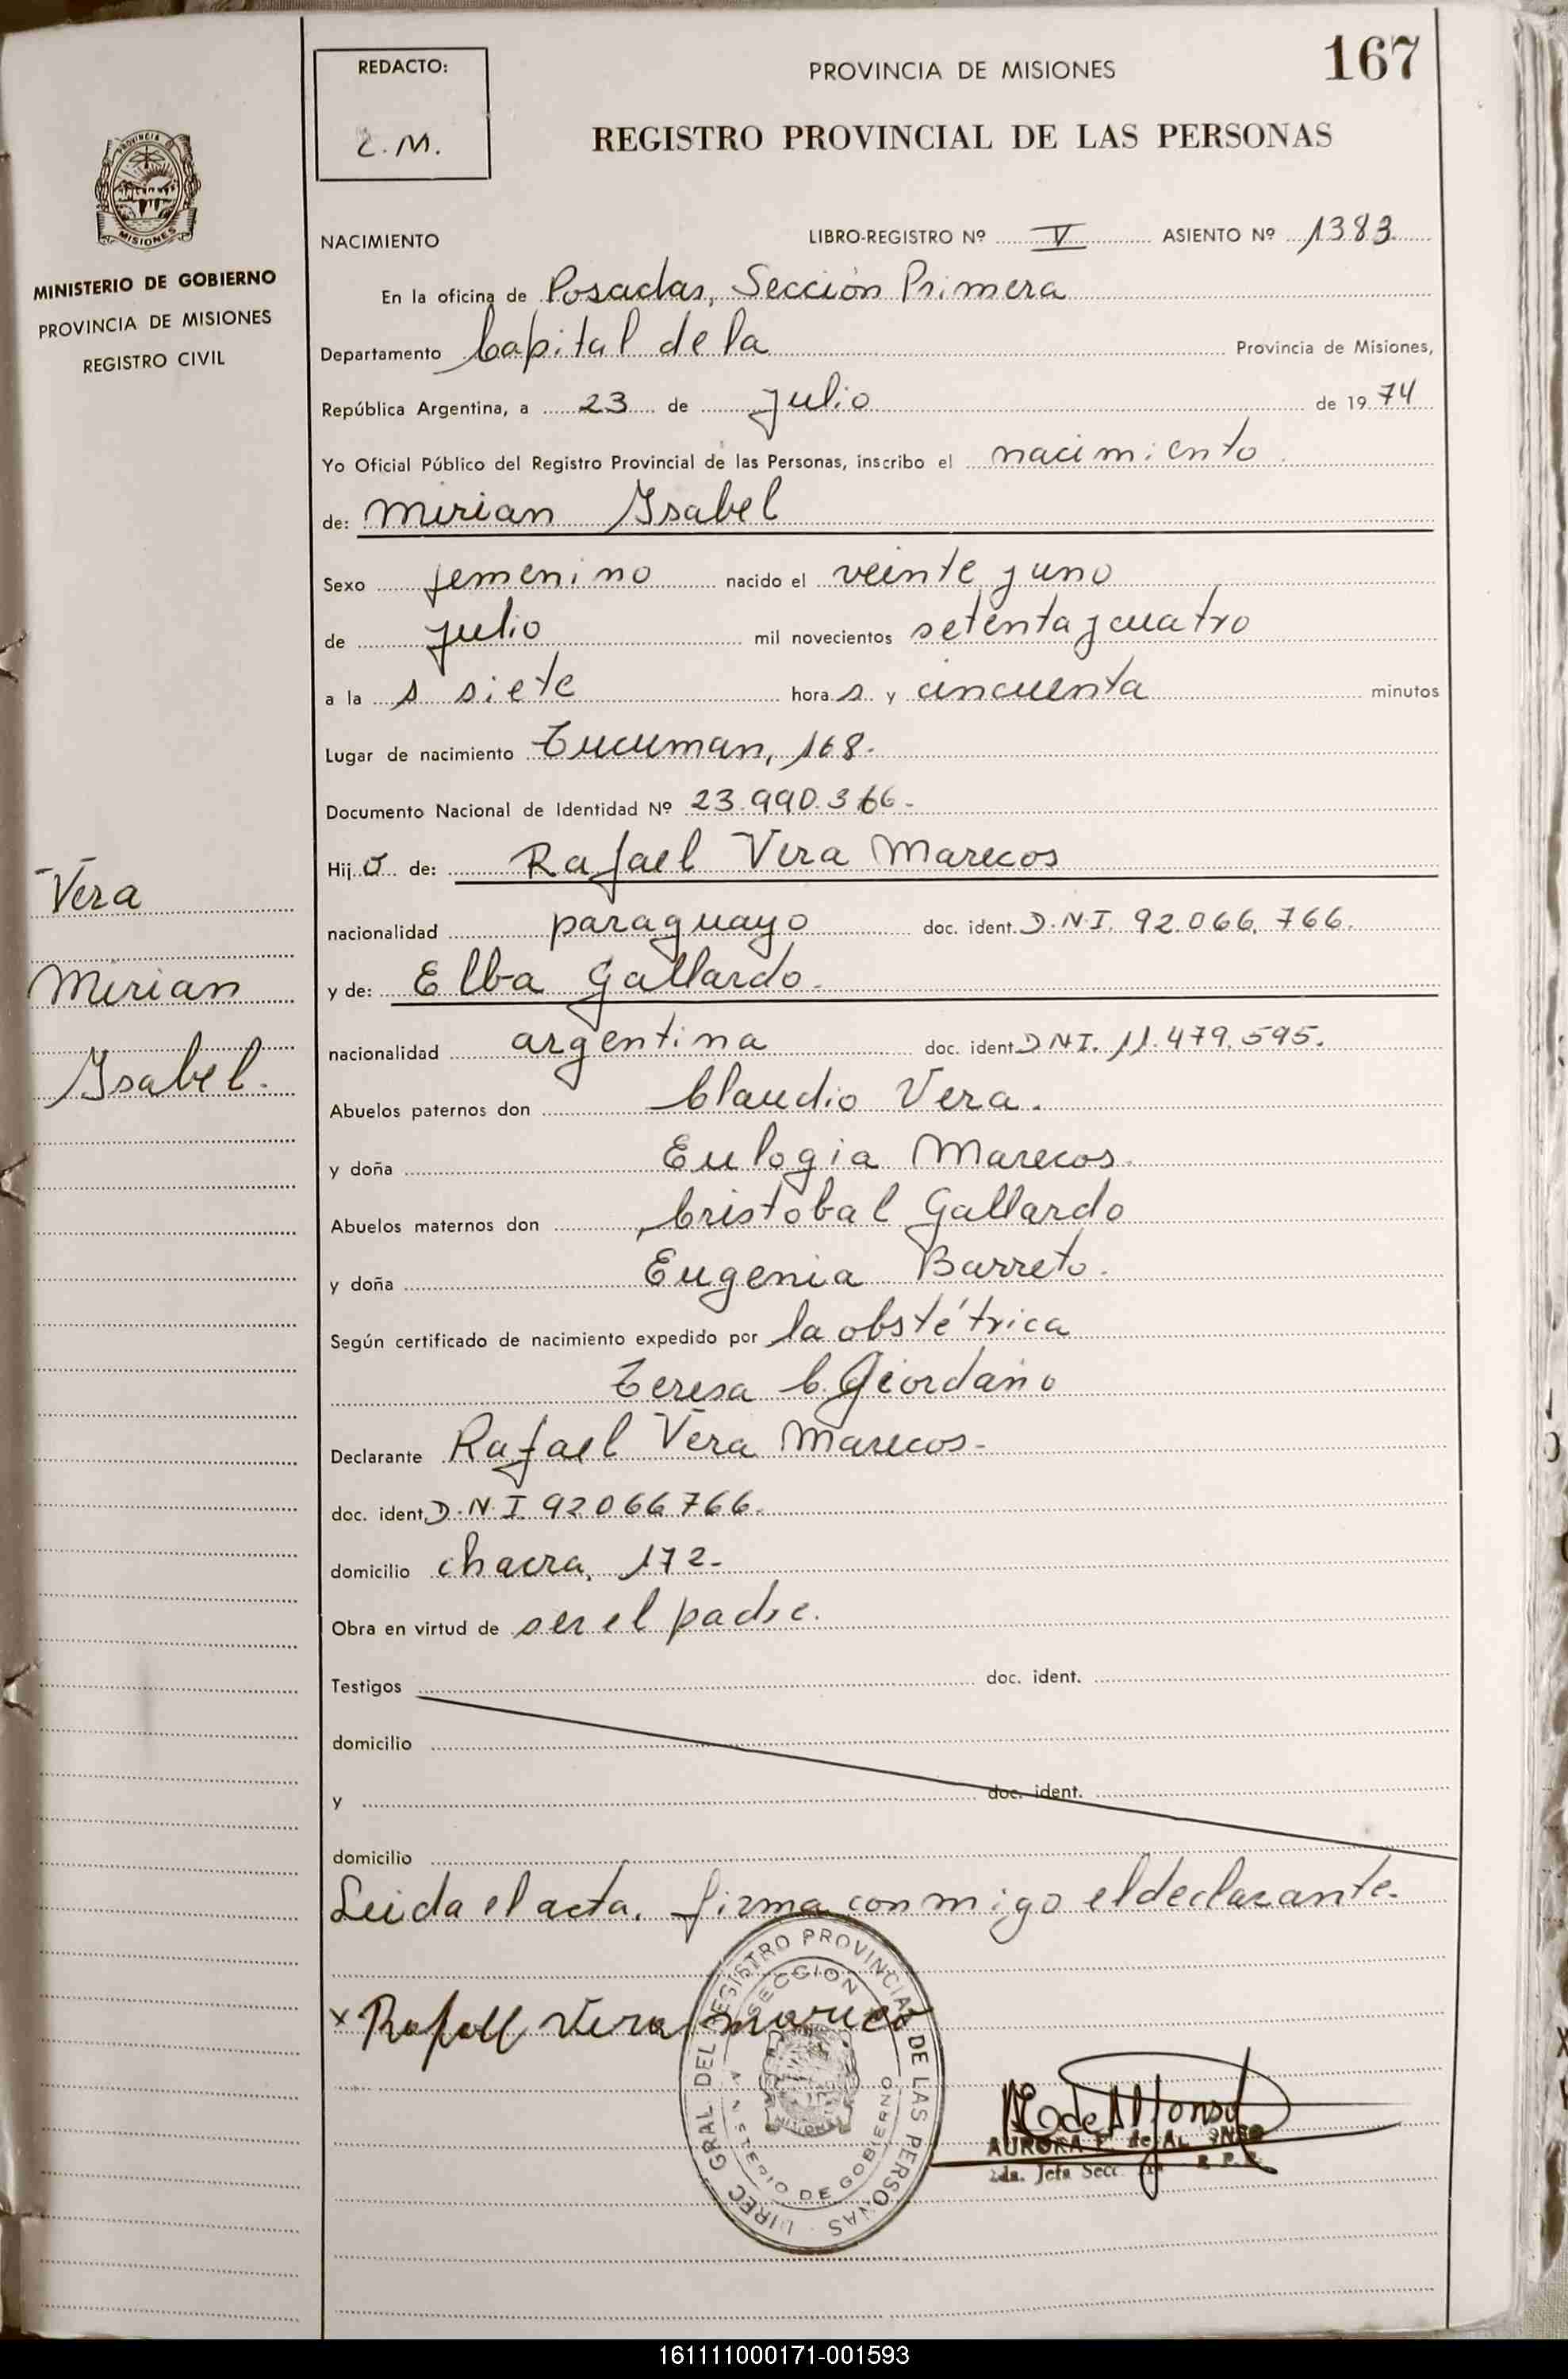 167
REDACTO:
PROVINCIA DE MISIONES
REGISTRO PROVINCIAL DE LAS PERSONAS
PROVINCIA
MISIONES
MINISTERIO DE GOBIERNO
PROVINCIA DE MISIONES
REGISTRO CIVIL
NACIMIENTO LIBRO-REGISTRO Nº V ASIENTO Nº 1383
En la oficina de Posadas, Sección Primera
Departamento Capital de la Provincia de Misiones,
República Argentina, a 23 de Julio de 1974
Yo Oficial Público del Registro Provincial de las Personas, inscribo el nacimiento
de: Mirian Ysabel
Sexo femenino nacido el veinte y uno
de julio mil novecientos setenta y cuatro
a la s siete hora s y cincuenta minutos
Lugar de nacimiento Tucuman, 168.
Documento Nacional de Identidad Nº 23.990.366-
Hij a de: Rafael Vera Marecos
nacionalidad paraguayo doc. ident. D.N.I. 92.066.766.
y de: Elba Gallardo.
nacionalidad argentina doc. ident. D.N.I. 11.479.595.
Abuelos paternos don Claudio Vera.
y doña Eulogia Marecos.
Abuelos maternos don Cristobal Gallardo
y doña Eugenia Barreto.
Según certificado de nacimiento expedido por la obstétrica
Teresa C. Giordano
Declarante Rafael Vera Marecos-
doc. ident. D.N.I. 92066766.
domicilio chacra, 172-
Obra en virtud de ser el padre.
Testigos doc. ident.
domicilio
y doc. ident.
domicilio
Leida el acta. firma conmigo el declarante.
Vera
Mirian
Ysabel.
x Rafael Vera Mareco
DIREC. GRAL DEL REGISTRO PROVINCIAL DE LAS PERSONAS
SECCION
MINISTERIO DE GOBIERNO
MISIONES
AURORA E. de ALFONSO
2da. Jefa Secc. R.P.P.
161111000171-001593